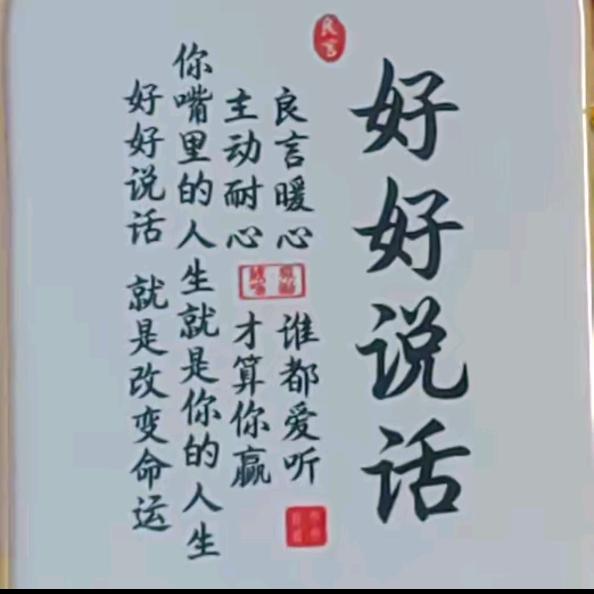 良言
好好说话
良言暖心 谁都爱听
主动耐心 才算你赢
你嘴里的人生就是你的人生
好好说话 就是改变命运